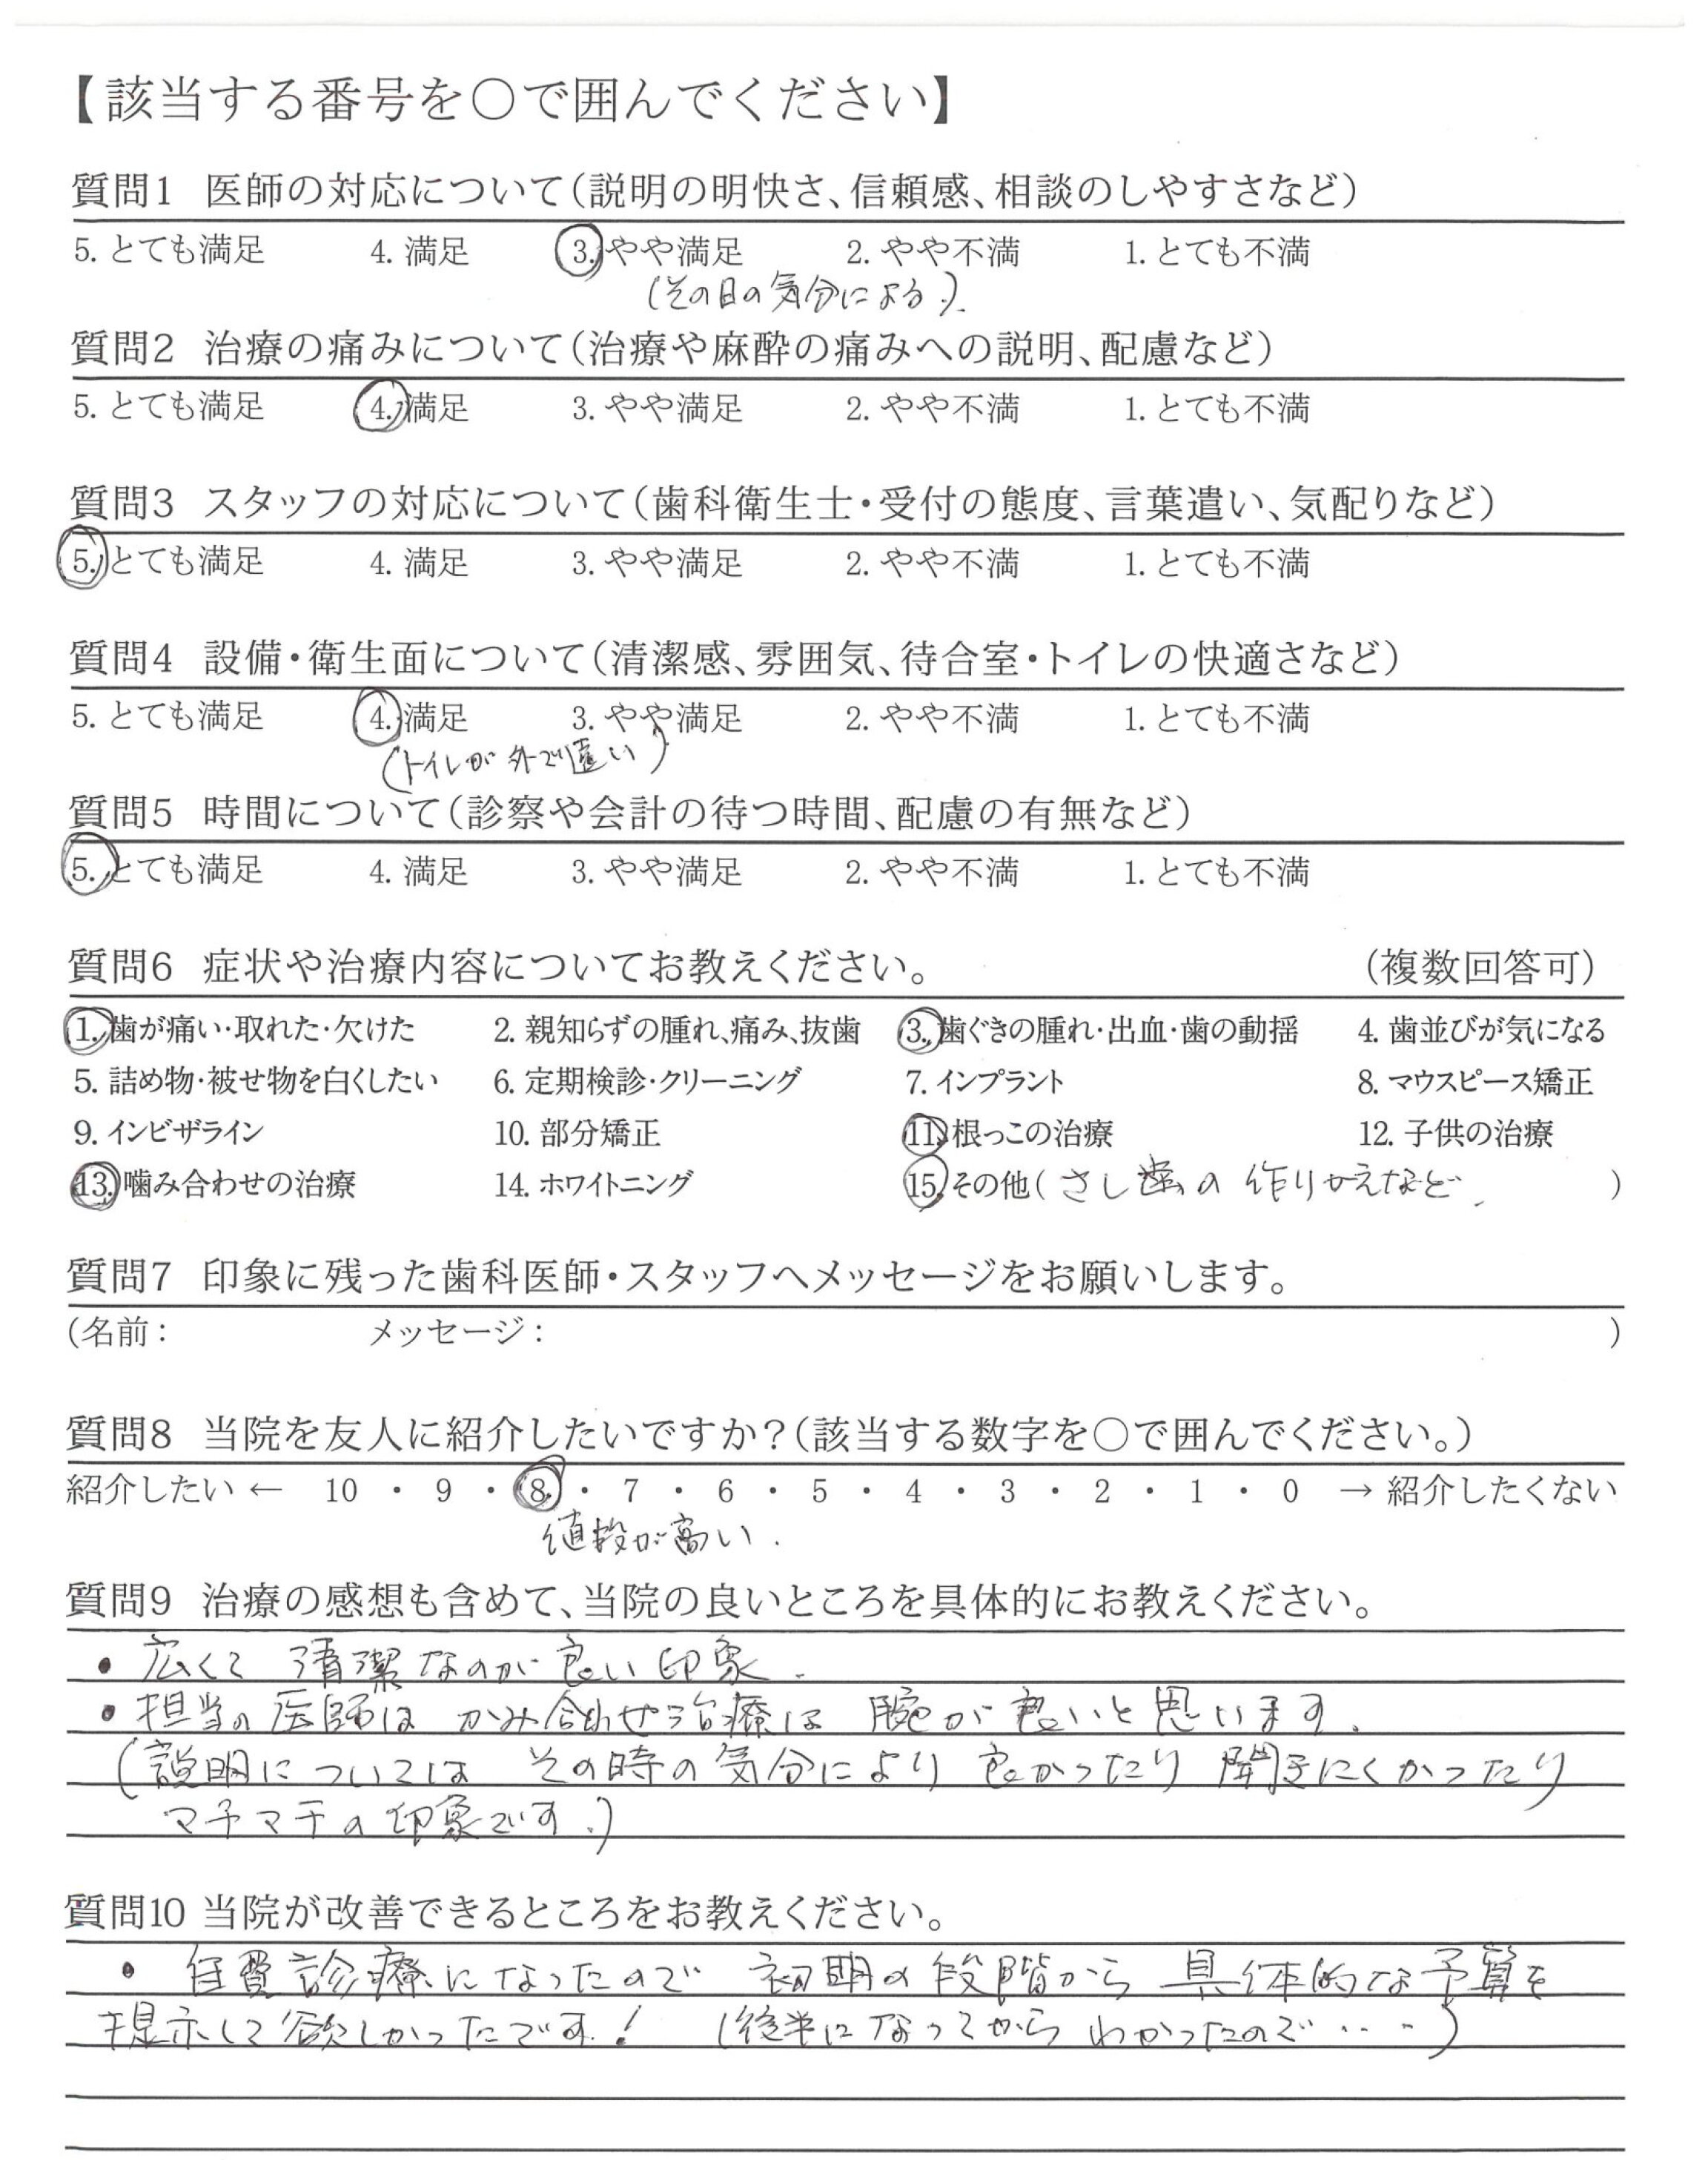 【該当する番号を〇で囲んでください】
質問1 医師の対応について(説明の明快さ、信頼感、相談のしやすさなど)
5. とても満足 4. 満足 3. やや満足 2. やや不満 1. とても不満
(その日の気分による.).
質問2 治療の痛みについて(治療や麻酔の痛みへの説明、配慮など)
5. とても満足 4. 満足 3. やや満足 2. やや不満 1. とても不満
質問3 スタッフの対応について(歯科衛生士・受付の態度、言葉遣い、気配りなど)
5. とても満足 4. 満足 3. やや満足 2. やや不満 1. とても不満
質問4 設備・衛生面について(清潔感、雰囲気、待合室・トイレの快適さなど)
5. とても満足 4. 満足 3. やや満足 2. やや不満 1. とても不満
(トイレが外で遠い)
質問5 時間について(診察や会計の待つ時間、配慮の有無など)
5. とても満足 4. 満足 3. やや満足 2. やや不満 1. とても不満
質問6 症状や治療内容についてお教えください。 (複数回答可)
1. 歯が痛い・取れた・欠けた 2. 親知らずの腫れ、痛み、抜歯 3. 歯ぐきの腫れ・出血・歯の動揺 4. 歯並びが気になる
5. 詰め物・被せ物を白くしたい 6. 定期検診・クリーニング 7. インプラント 8. マウスピース矯正
9. インビザライン 10. 部分矯正 11. 根っこの治療 12. 子供の治療
13. 噛み合わせの治療 14. ホワイトニング 15. その他(さし歯の作りかえなど、 )
質問7 印象に残った歯科医師・スタッフへメッセージをお願いします。
(名前: メッセージ: )
質問8 当院を友人に紹介したいですか?(該当する数字を〇で囲んでください。)
紹介したい ← 10 ・ 9 ・ 8 ・ 7 ・ 6 ・ 5 ・ 4 ・ 3 ・ 2 ・ 1 ・ 0 → 紹介したくない
値段が高い.
質問9 治療の感想も含めて、当院の良いところを具体的にお教えください。
・広くて 清潔なのが良い印象.
・担当の医師は かみ合わせ治療は 腕が良いと思います.
(説明については その時の気分により 良かったり 聞きにくかったり
マチマチの印象です.)
質問10 当院が改善できるところをお教えください。
・自費診療になったので 初期の段階から 具体的な予算を
提示して欲しかったです! (後半になってから わかったので‥‥)